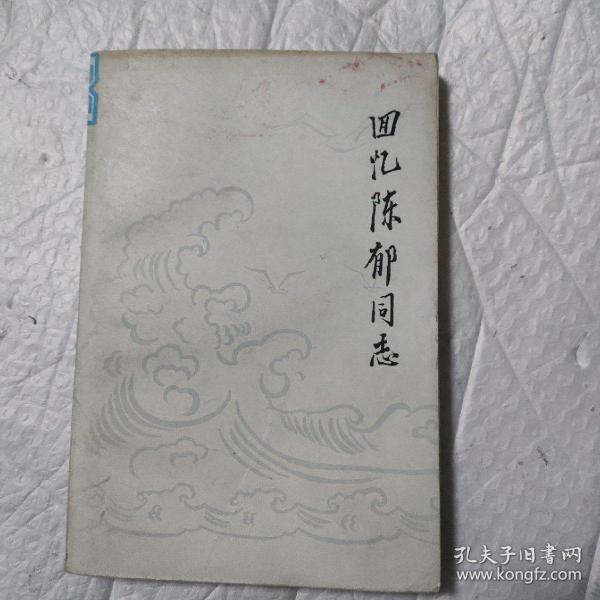 回忆陈郁同志
孔夫子旧書网
www.kongfz.com